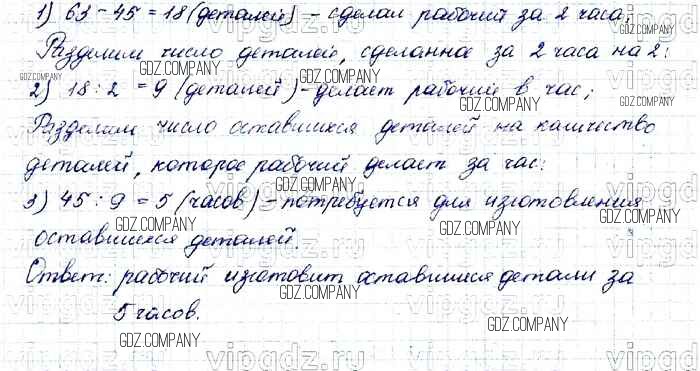 1) 63 - 45 = 18 (деталей) - сделал рабочий за 2 часа;
Разделим число деталей, сделанное за 2 часа на 2:
2) 18 : 2 = 9 (деталей) - делает рабочий в час;
Разделим число оставшихся деталей на количество
деталей, которое рабочий делает за час:
3) 45 : 9 = 5 (часов) - потребуется для изготовления
оставшихся деталей.
Ответ: рабочий изготовит оставшиеся детали за
5 часов.
GDZ.COMPANY
GDZ.COMPANY
GDZ.COMPANY
GDZ.COMPANY
GDZ.COMPANY
GDZ.COMPANY
GDZ.COMPANY
GDZ.COMPANY
vipgdz.ru